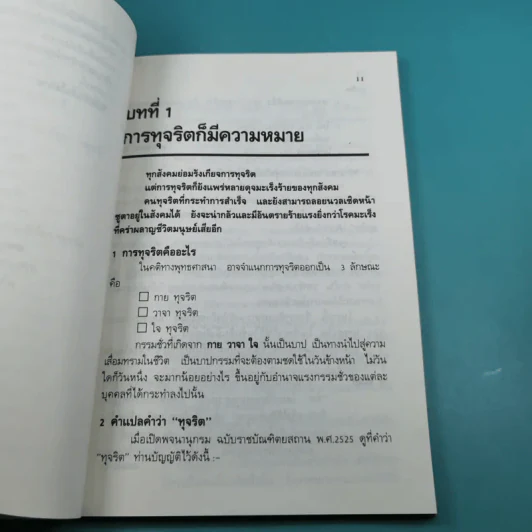 11
บทที่ 1
การทุจริตก็มีความหมาย
ทุกสังคมย่อมรังเกียจการทุจริต
แต่การทุจริตก็ยังแพร่หลายดุจมะเร็งร้ายของทุกสังคม
คนทุจริตที่กระทำการสำเร็จ และยังสามารถลอยนวลเชิดหน้า
ชูตาอยู่ในสังคมได้ ยังจะน่ากลัวและมีอันตรายร้ายแรงยิ่งกว่าโรคมะเร็ง
ที่คร่าผลาญชีวิตมนุษย์เสียอีก
1 การทุจริตคืออะไร
ในคติทางพุทธศาสนา อาจจำแนกการทุจริตออกเป็น 3 ลักษณะ
คือ
☐ กาย ทุจริต
☐ วาจา ทุจริต
☐ ใจ ทุจริต
กรรมชั่วที่เกิดจาก กาย วาจา ใจ นั้นเป็นบาป เป็นทางนำไปสู่ความ
เสื่อมทรามในชีวิต เป็นบาปกรรมที่จะต้องตามชดใช้ในวันข้างหน้า ไม่วัน
ใดก็วันหนึ่ง จะมากน้อยอย่างไร ขึ้นอยู่กับอำนาจแรงกรรมชั่วของแต่ละ
บุคคลที่ได้กระทำลงไปนั้น
2 คำแปลคำว่า "ทุจริต"
เมื่อเปิดพจนานุกรม ฉบับราชบัณฑิตยสถาน พ.ศ.2525 ดูที่คำว่า
"ทุจริต" ท่านบัญญัติไว้ดังนี้ :-